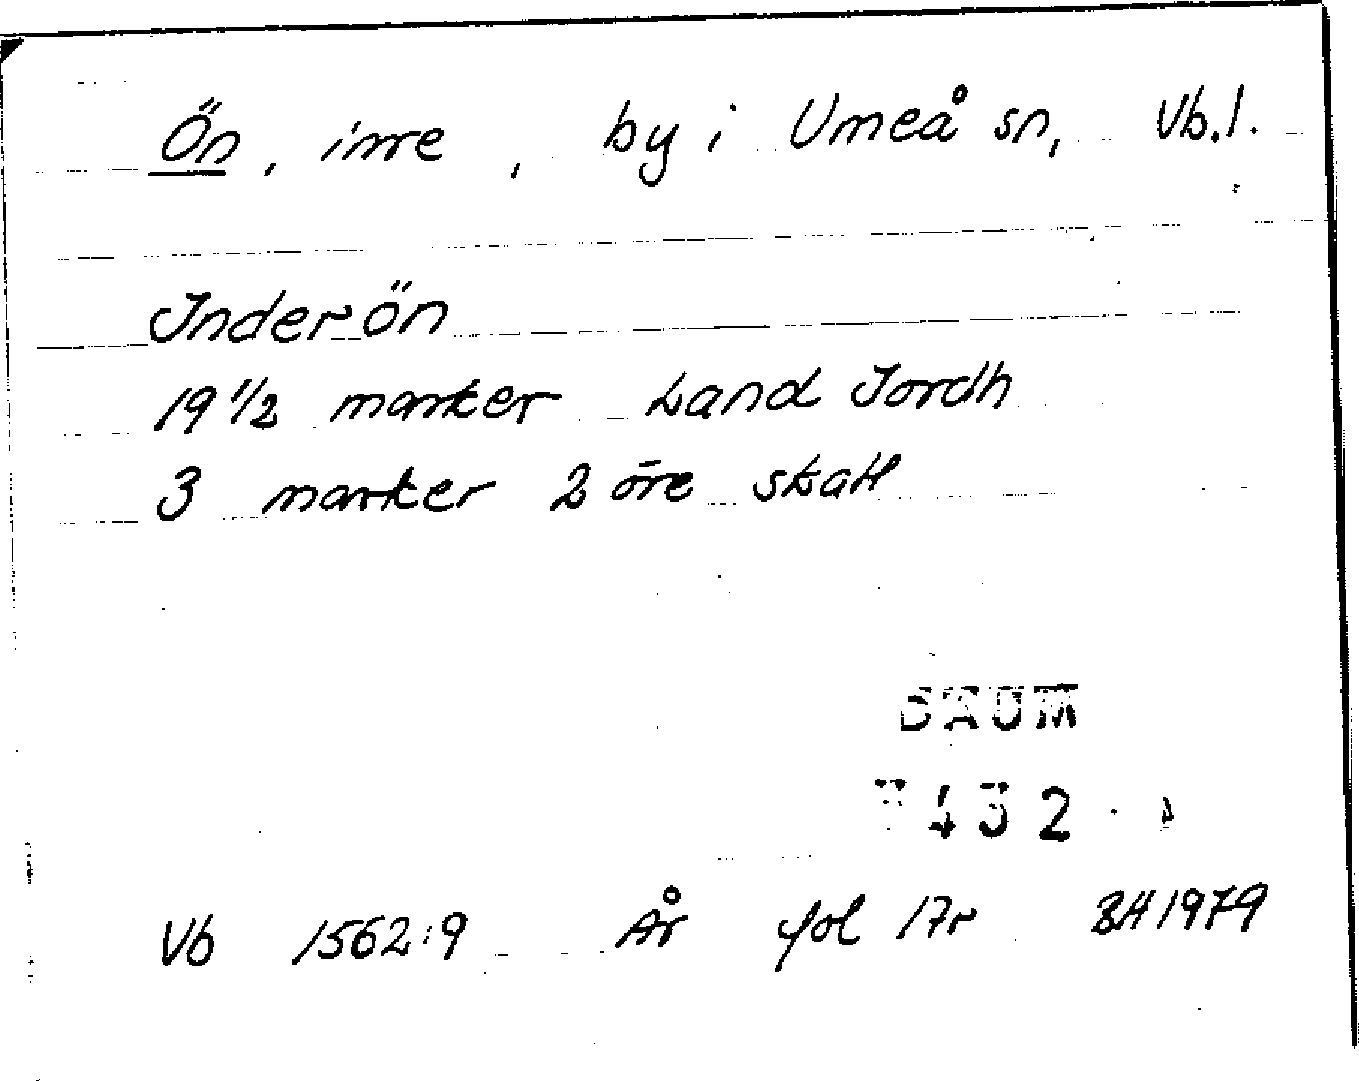 Ön, inre, by i Umeå sn, Vb.l.
Inderön
19 1/2 marker Land Jordh
3 marker 2 öre skatt
DAUM
432
Vb 1562:9 År fol 17r BH 1979